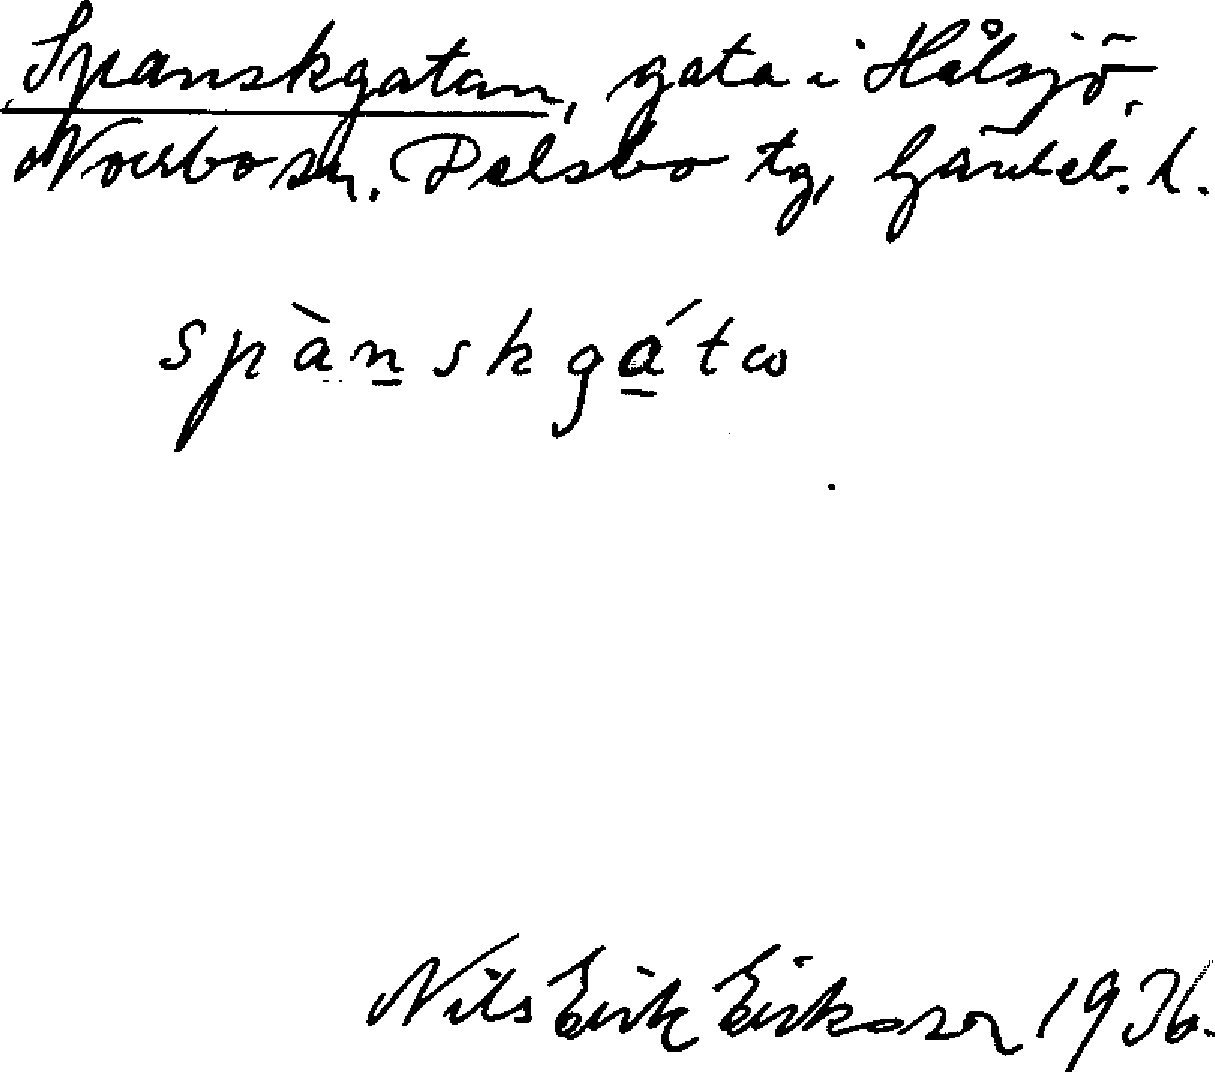 Spanskgatan, gata i Hålsjö,
Norrbo sn. Delsbo tg, Gävleb. l.
spànskgátω
Nils Erik Eriksson 1936.